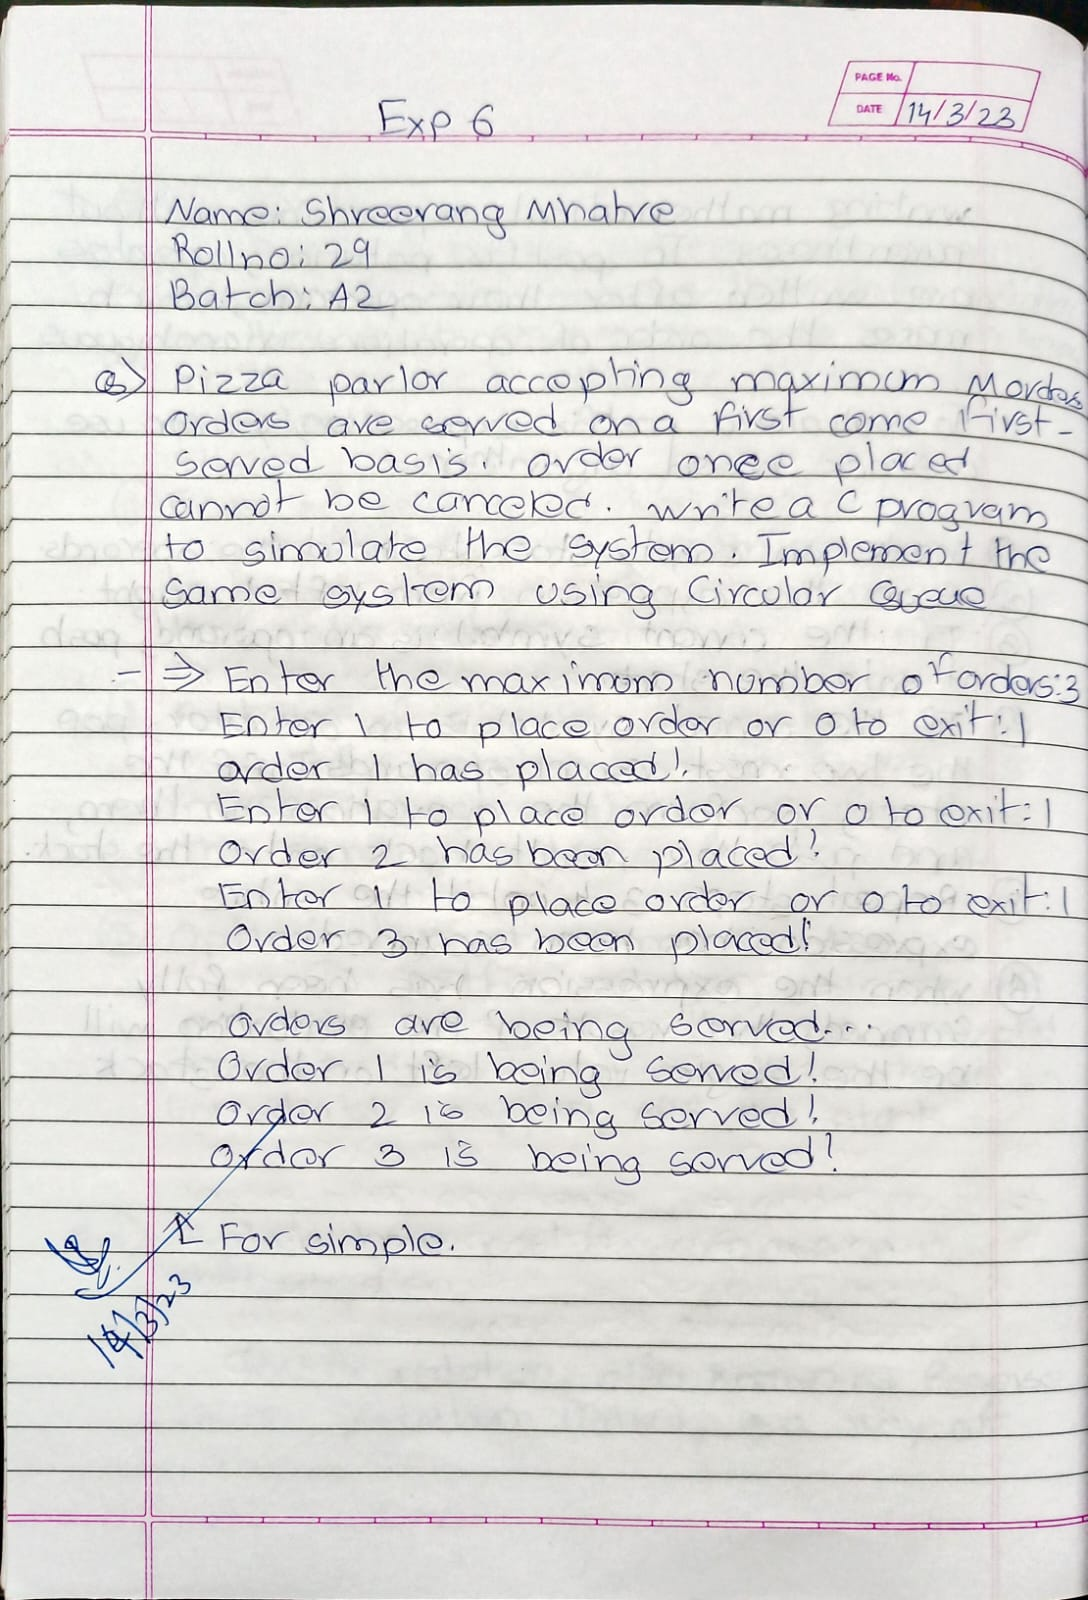 PAGE No.
DATE 14/3/23
Exp 6
Name: Shreerang Mhatre
Rollno: 29
Batch: A2
Q) Pizza parlor accepting maximum M orders
Orders are served on a first come first-
served basis. Order once placed
cannot be canceled. Write a C program
to simulate the system. Implement the
same system using Circular Queue
-⇒ Enter the maximum number of orders:3
Enter 1 to place order or 0 to exit:1
order 1 has placed!
Enter 1 to place order or 0 to exit:1
Order 2 has been placed!
Enter 1 to place order or 0 to exit:1
Order 3 has been placed!
Orders are being served...
Order 1 is being served!
Order 2 is being served!
Order 3 is being served!
For simple.
14/3/23